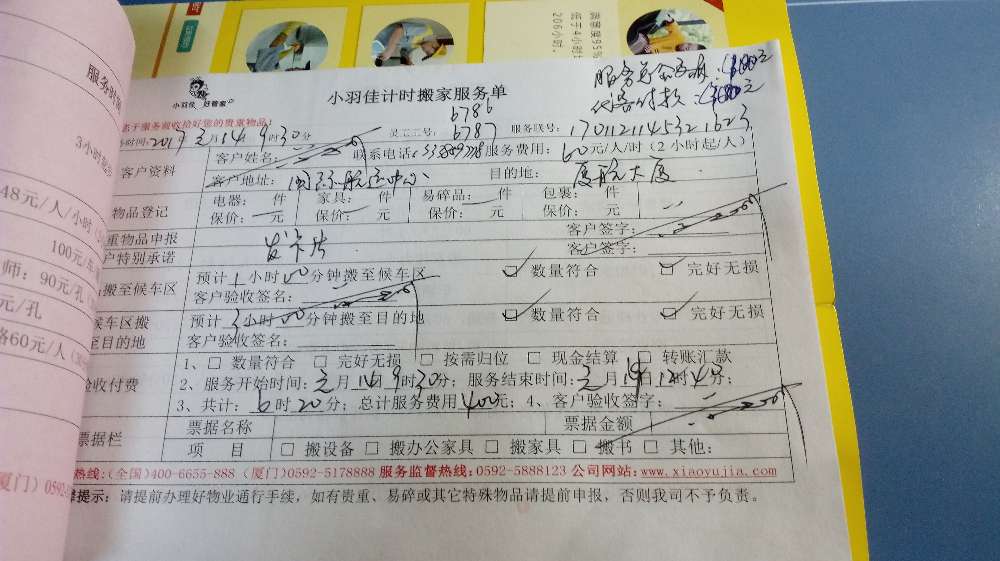 服务
满意度95%
低于4小时
206小时.
服务总金额:
代客付款:
小羽佳 好管家
小羽佳计时搬家服务单
6786
于服务前收拾好您的贵重物品!
时间:2017元月14日9时30分 员工工号: 6787 服务联号:
客户资料 客户姓名: 联系电话: 服务费用: 60元/人/时(2小时起/人)
客户地址: 国际航运中心 目的地: 厦航大厦
物品登记 电器: 件 家具: 件 易碎品: 件 包裹: 件
保价: 元 保价: 元 保价: 元 保价: 元
重物品申报 客户签字:
户特别承诺 发卡片 客户签字:
搬至候车区 预计1小时00分钟搬至候车区 ☑ 数量符合 ☑ 完好无损
客户验收签名:
候车区搬 预计 小时00分钟搬至目的地 ☑ 数量符合 ☑ 完好无损
至目的地 客户验收签名:
1、□ 数量符合 □ 完好无损 □ 按需归位 □ 现金结算 □ 转账汇款
验收付费 2、服务开始时间:元月14日9时30分;服务结束时间:元月14日12时4 分;
3、共计:6时20分;总计服务费用400元;4、客户验收签字:
票据栏 票据名称 票据金额
项 目 □ 搬设备 □ 搬办公家具 □ 搬家具 □ 搬书 □ 其他:
热线:(全国)400-6655-888 (厦门)0592-5178888 服务监督热线:0592-5888123 公司网站:www.xiaoyujia.com
提示:请提前办理好物业通行手续,如有贵重、易碎或其它特殊物品请提前申报,否则我司不予负责。
3小时
48元/人/小时
100元/
师:90元/孔
元/孔
60元/人
厦门)0592